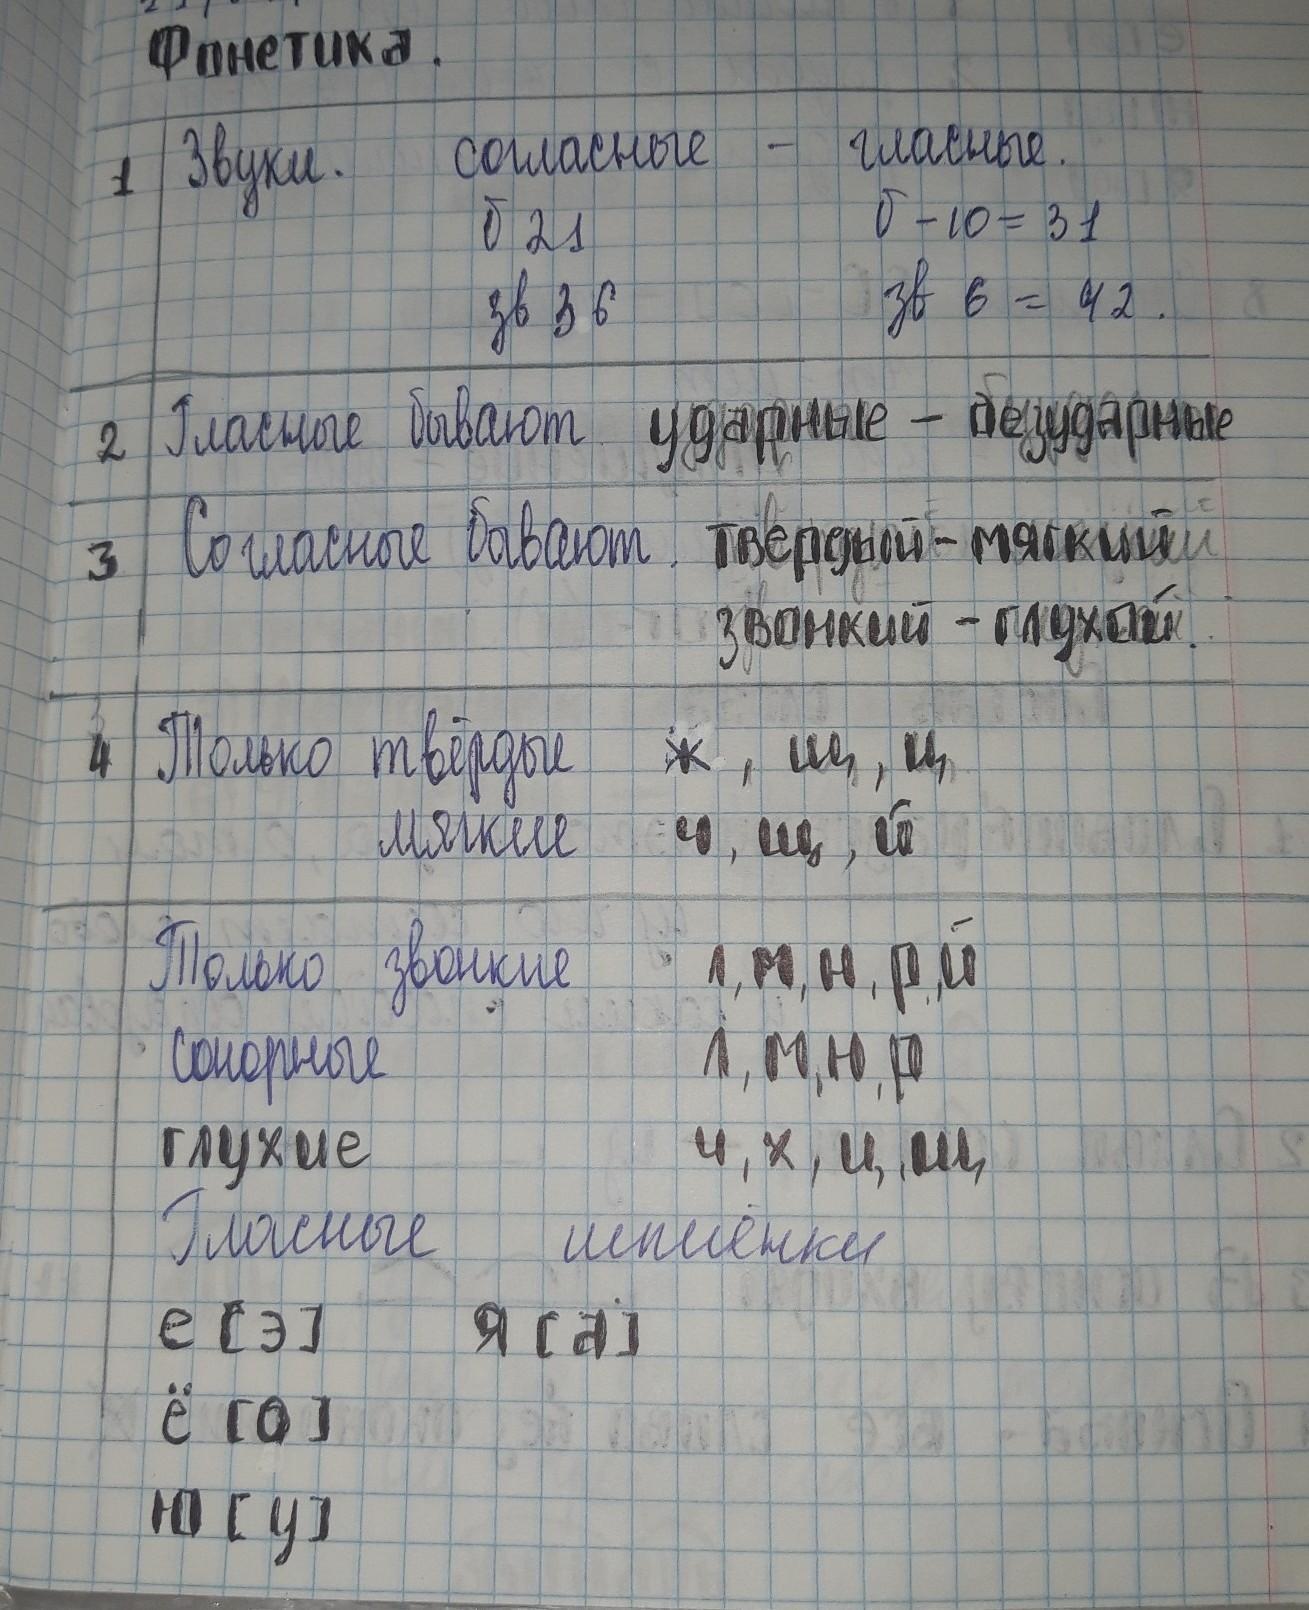 Фонетика.
1 Звуки. согласные - гласные.
б 21 б - 10 = 31
зв 36 зв 6 = 42.
2 Гласные бывают ударные - безударные
3 Согласные бывают. твердый - мягкий
звонкий - глухой.
4 Только твёрдые ж, щ, ц
мягкие ч, щ, й
Только звонкие л, м, н, р, й
сонорные л, м, н, р
глухие ч, х, ц, щ
Гласные
е [э] я [а]
ё [о]
ю [у]